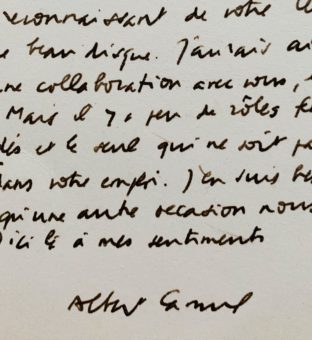 reconnaissant de votre
beau disque. J'aurais
une collaboration avec vous,
Mais il y a peu de rôles
et le seul qui ne soit
dans votre emploi. J'en suis
qu'une autre occasion nous
ici là à mes sentiments
Albert Camus